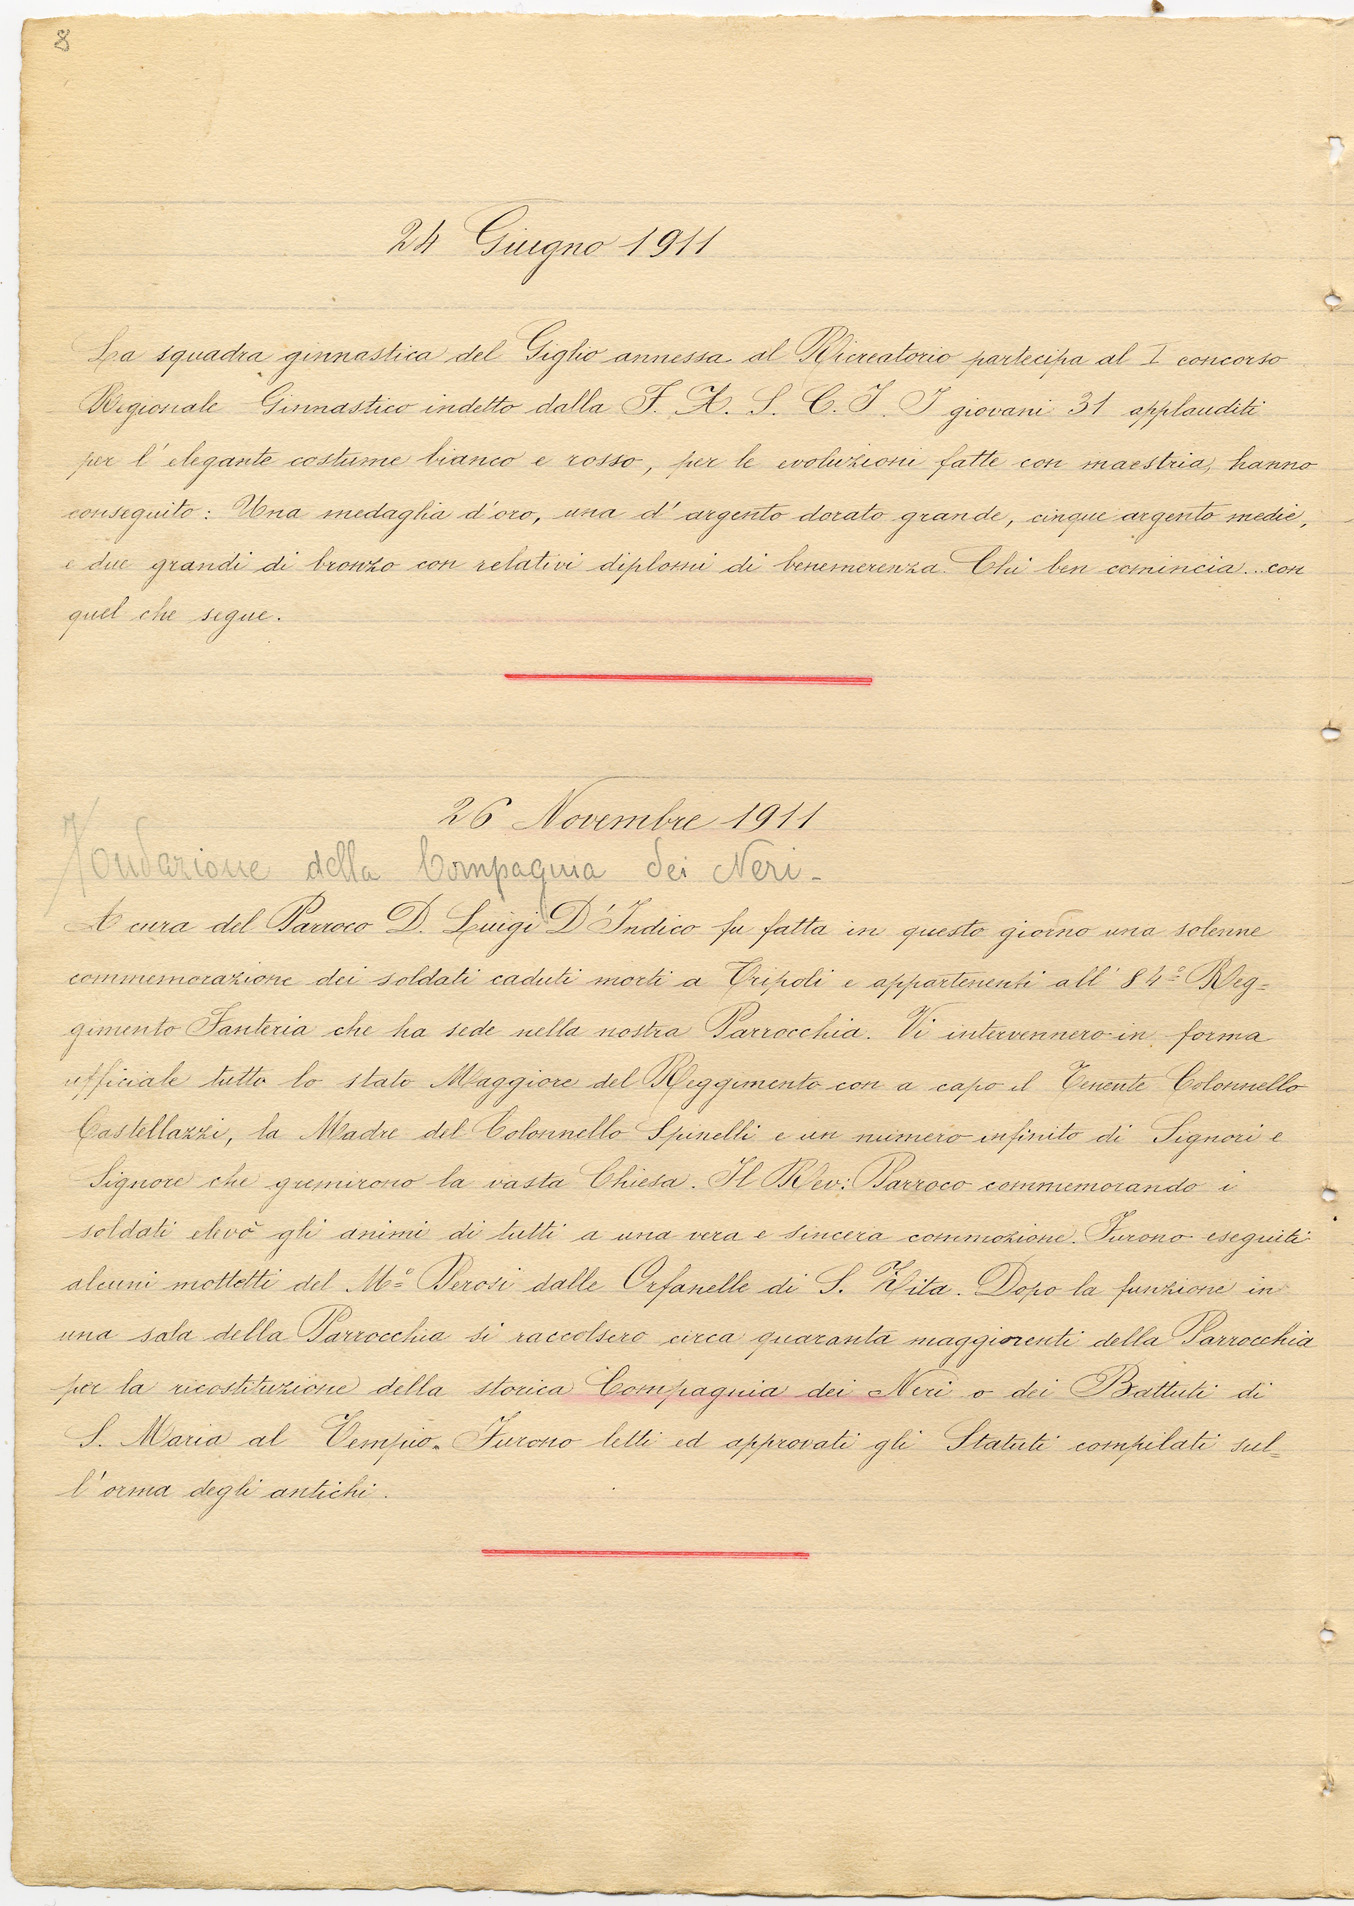 8
24 Giugno 1911
La squadra ginnastica del Giglio annessa al Ricreatorio partecipa al I concorso
Regionale Ginnastico indetto dalla F. A. S. C. I. I giovani 31 applauditi
per l'elegante costume bianco e rosso, per le evoluzioni fatte con maestria, hanno
conseguito: Una medaglia d'oro, una d'argento dorato grande, cinque argento medie,
e due grandi di bronzo con relativi diplomi di benemerenza. Chi ben comincia... con
quel che segue.
26 Novembre 1911
Fondazione della Compagnia dei Neri -
A cura del Parroco D. Luigi D'Indico fu fatta in questo giorno una solenne
commemorazione dei soldati caduti morti a Tripoli e appartenenti all'84º Reg=
gimento Fanteria che ha sede nella nostra Parrocchia. Vi intervennero in forma
ufficiale tutto lo stato Maggiore del Reggimento con a capo il Tenente Colonnello
Castellazzi, la Madre del Colonnello Spinelli e un numero infinito di Signori e
Signore che gremirono la vasta Chiesa. Il Rev: Parroco commemorando i
soldati elevò gli animi di tutti a una vera e sincera commozione. Furono eseguiti
alcuni mottetti del Mº Perosi dalle Orfanelle di S. Zita. Dopo la funzione in
una sala della Parrocchia si raccolsero circa quaranta maggiorenti della Parrocchia
per la ricostituzione della storica Compagnia dei Neri o dei Battuti di
S. Maria al Tempio. Furono letti ed approvati gli Statuti compilati sul=
l'orma degli antichi.